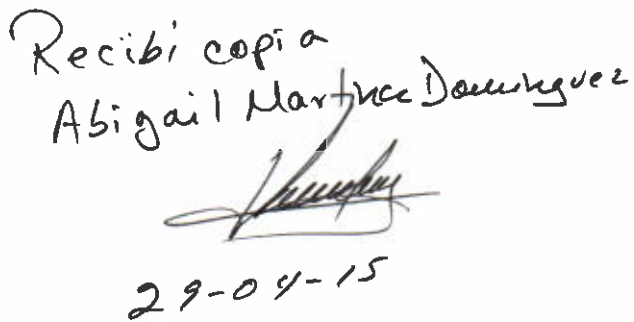 Recibi copia
Abigail Martinez Dominguez
29-04-15